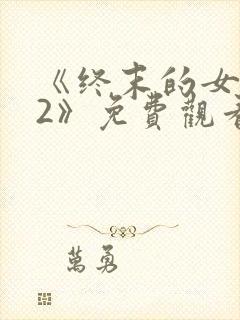 《終末的女
2》免費觀看
萬勇